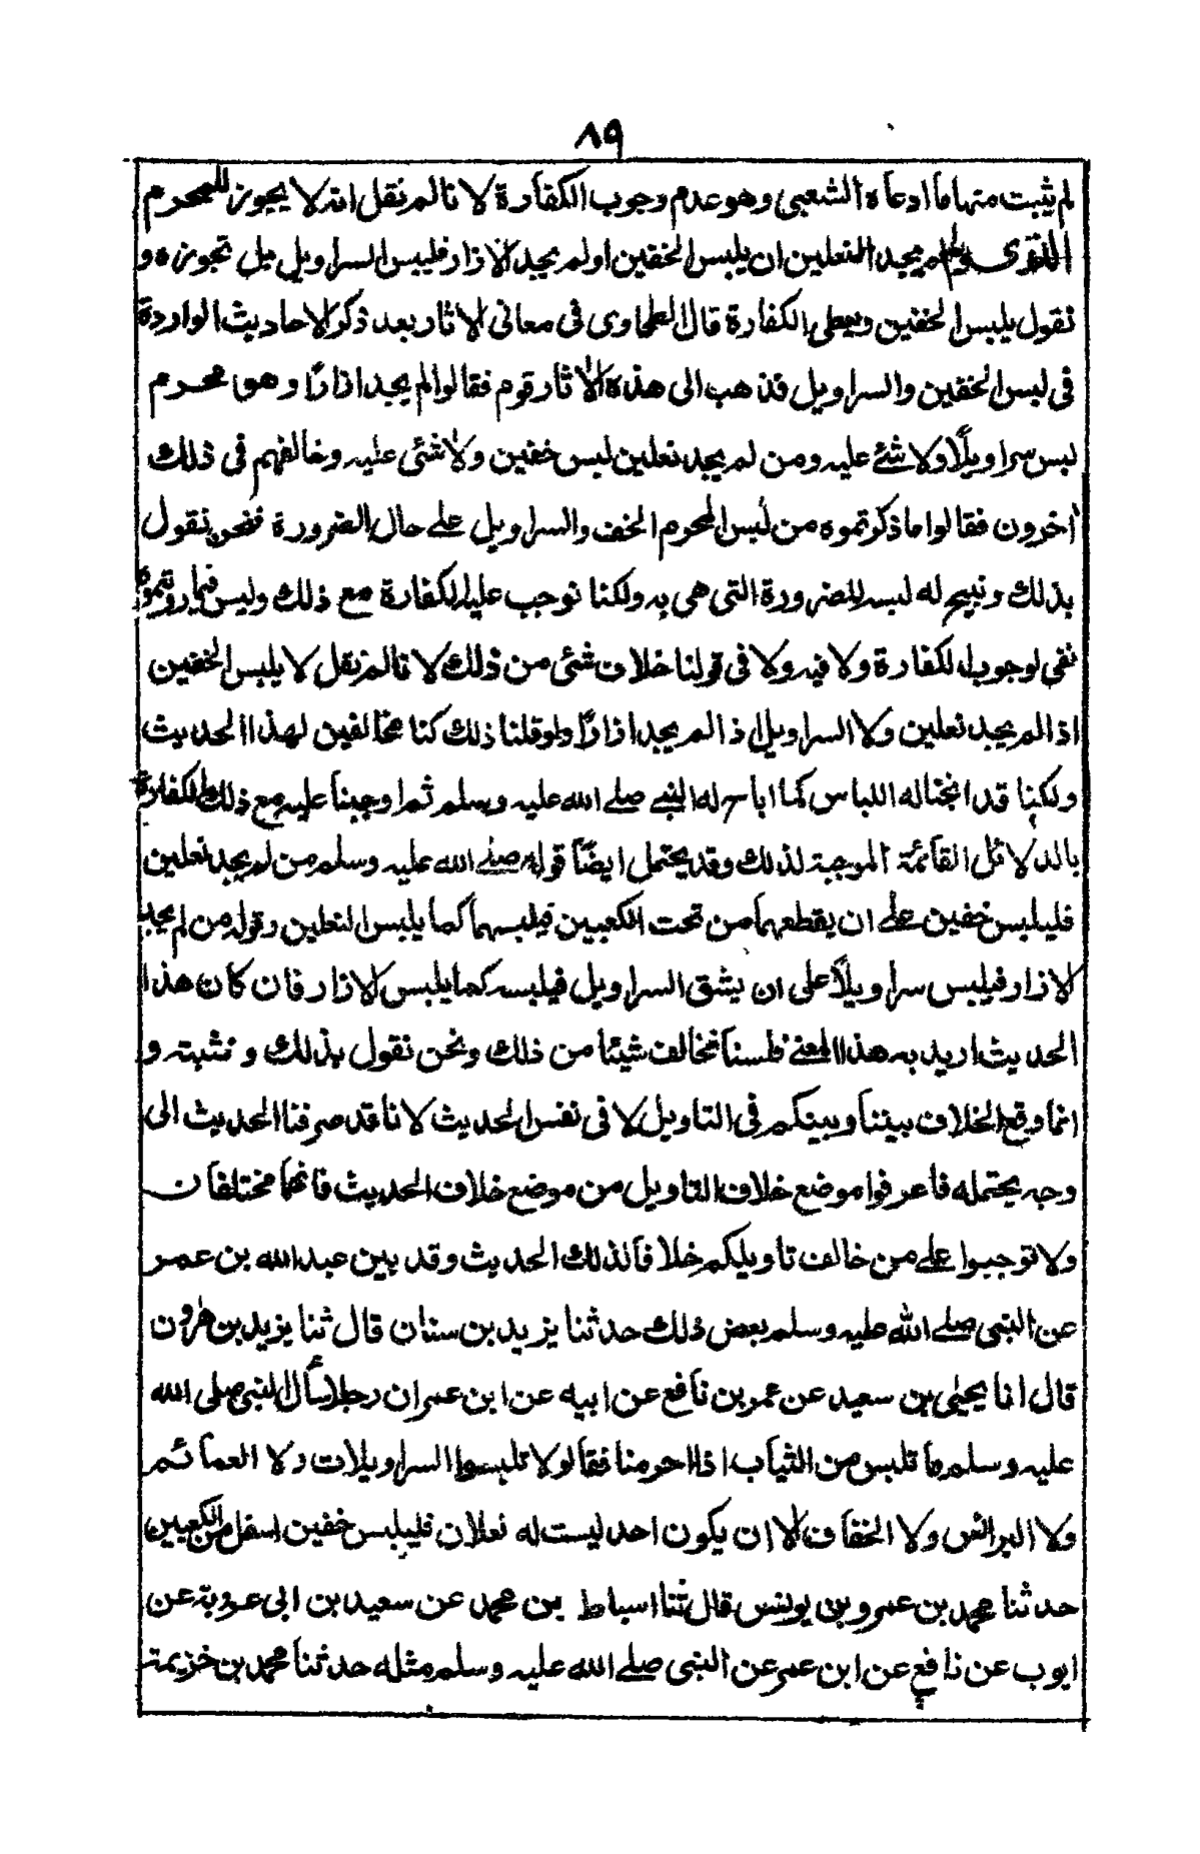 ٨٩
لم يثبت منها ما ادعاه الشعبى وهو عدم وجوب الكفارة لانا لم نقل انه لا يجوز للمحرم
الذى لم يجد النعلين ان يلبس الخفين او لم يجد الازار فليبس السراويل بل تجوزه و
نقول يلبس الخفين ويعطى الكفارة قال الطحاوى فى معانى الاثار بعد ذكر الاحاديث الواردة
فى لبس الخفين والسراويل فذهب الى هذه الاثار قوم فقالوا لم يجد ازارًا وهو محرم
لبس سراويلًا ولا شئ عليه ومن لم يجد نعلين لبس خفين ولا شئى عليه وخالفهم فى ذلك
اخرون فقالوا ما ذكرتموه من لُبس المحرم الخف والسراويل على حال الضرورة فنحن نقول
بذلك ونبيح له لبسه للضرورة التى هى به ولكنا نوجب عليه الكفارة مع ذلك وليس فيما رويتموه
نفى لوجوب الكفارة ولا فيه ولا فى قولنا خلاف شئى من ذلك لانا لم نقل لا يلبس الخفين
اذا لم يجد نعلين ولا السراويل اذ الم يجد ازارًا ولو قلنا ذلك كنا مخالفين لهذا الحديث
ولكنا قد ابحنا له اللباس كما اباح له النبى صلى الله عليه وسلم ثم اوجبنا عليه مع ذلك الكفارة
بالدلائل القائمة الموجبة لذلك وقد يحتمل ايضًا قوله صلى الله عليه وسلم من لم يجد نعلين
فليلبس خفين على ان يقطعهما من تحت الكعبين فيلبسهما كما يلبس النعلين وقوله من لم يجد
الازار فيلبس سراويلًا على ان يشق السراويل فيلبسه كما يلبس الازار فان كان هذا
الحديث اريد به هذا المعنى فلسنا نخالف شيئا من ذلك ونحن نقول بذلك ونثبته و
انما وقع الخلاف بيننا وبينكم فى التاويل لا فى نفس الحديث لانا قد صرفنا الحديث الى
وجه يحتمله فاعرفوا موضع خلاف التاويل من موضع خلاف الحديث فانهما مختلفان
ولا توجبوا على من خالف تاويلكم خلافا لذلك الحديث وقد بين عبدالله بن عمر
عن النبى صلى الله عليه وسلم بعض ذلك حدثنا يزيد بن سنان قال ثنا يزيد بن هٰرون
قال انا يحيٰى بن سعيد عن عمر بن نافع عن ابيه عن ابن عمران رجلا سأل النبى صلى الله
عليه وسلم ما تلبس من الثياب اذا احرمنا فقال لا تلبسوا السراويلات ولا العمائم
ولا البرانس ولا الخفاف الا ان يكون احد ليست له نعلان فليلبس خفين اسفل من الكعبين
حدثنا محمد بن عمرو بن يونس قال ثنا اسباط بن محمد عن سعيد بن ابى عروبة عن
ايوب عن نافع عن ابن عمر عن النبى صلى الله عليه وسلم مثله حدثنا محمد بن خزيمة